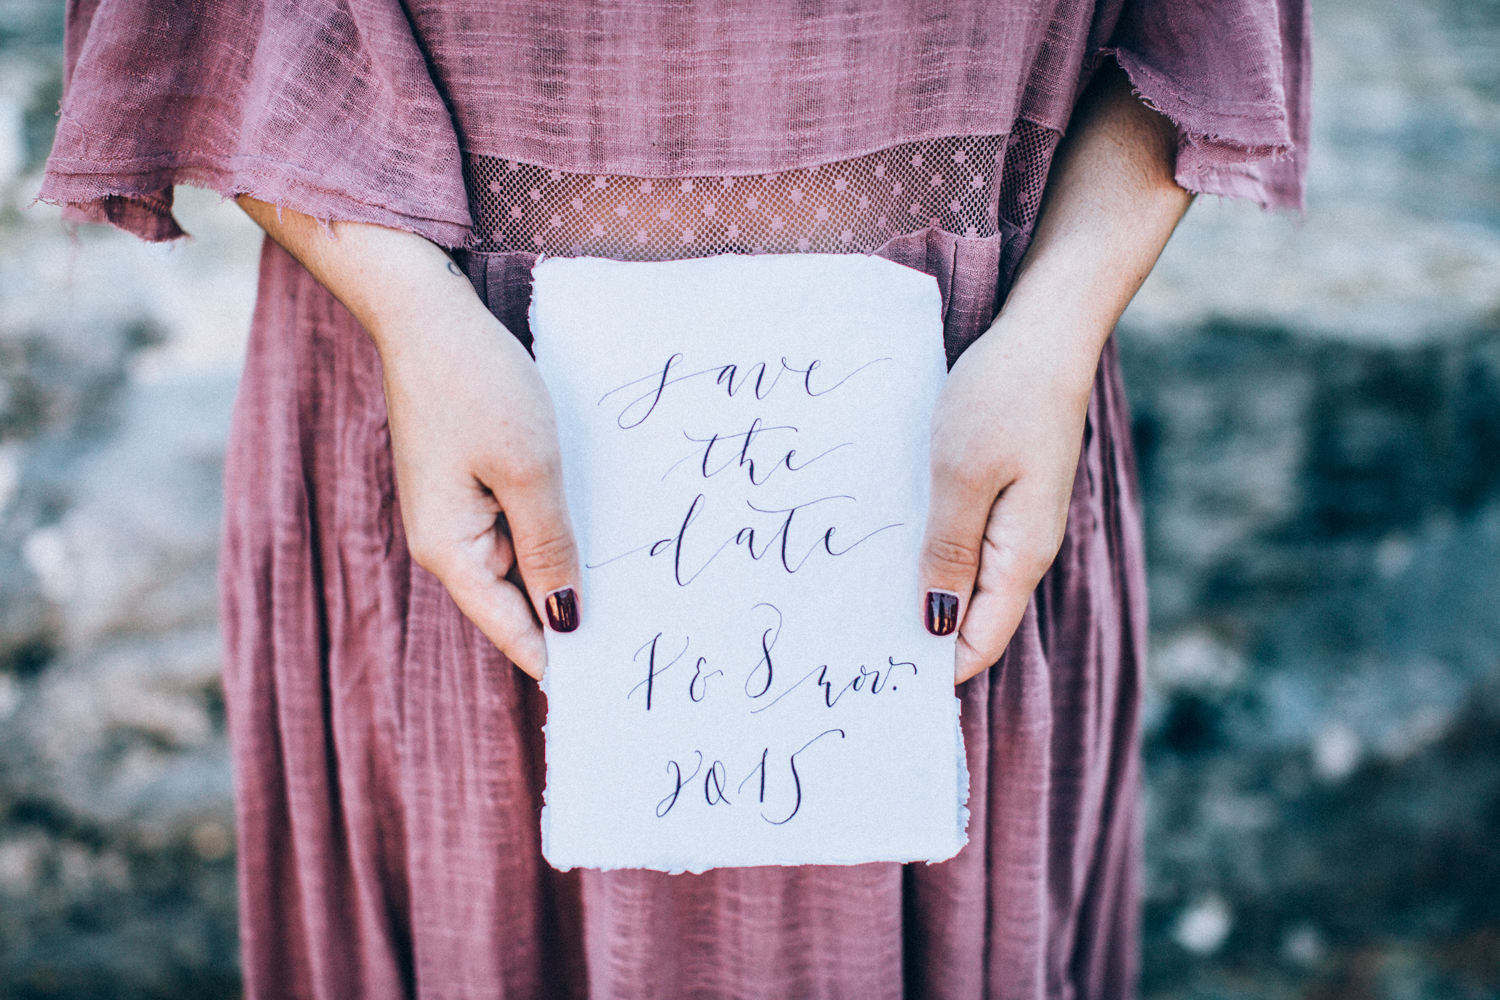 save
the
date
7 & 8 nov.
2015